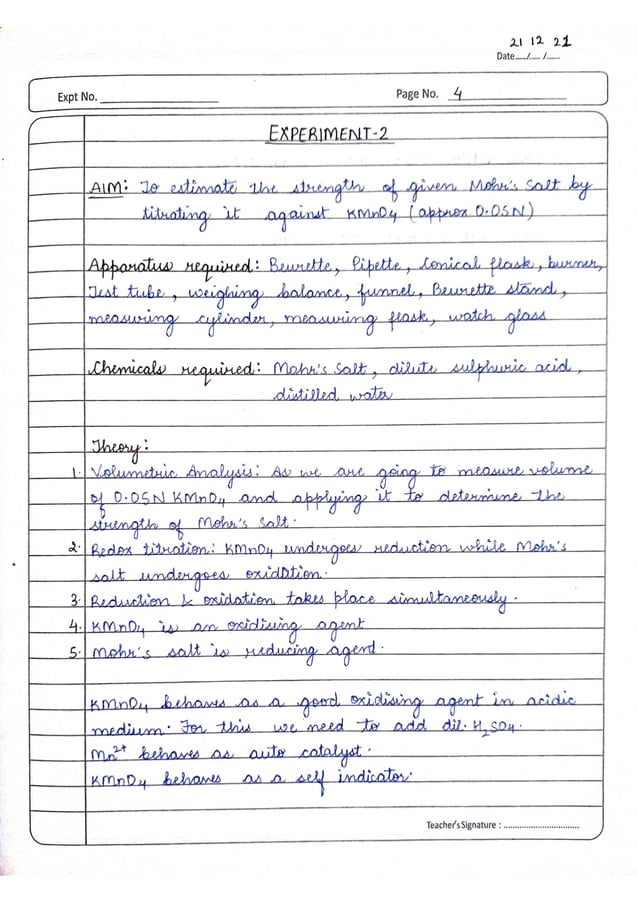 21 12 21
Date..../..../....
Expt No.
Page No. 4
EXPERIMENT-2
AIM: To estimate the strength of given Mohr's Salt by
titrating it against KMnO4 (approx 0.05N)
Apparatus required: Beurette, Pipette, Conical flask, burner,
Test tube, weighing balance, funnel, Beurette stand,
measuring cylinder, measuring flask, watch glass
Chemicals required: Mohr's Salt, dilute sulphuric acid,
distilled water
Theory:
1. Volumetric Analysis: As we are going to measure volume
of 0.05N KMnO4 and applying it to determine the
strength of Mohr's Salt.
2. Redox titration: KMnO4 undergoes reduction while Mohr's
salt undergoes oxidation.
3. Reduction & oxidation takes place simultaneously.
4. KMnO4 is an oxidising agent
5. Mohr's salt is reducing agend.
KMnO4 behaves as a good oxidising agent in acidic
medium. For this we need to add dil. H2SO4.
Mn2+ behaves as auto catalyst.
KMnO4 behaves as a self indicator.
Teacher's Signature : ................................